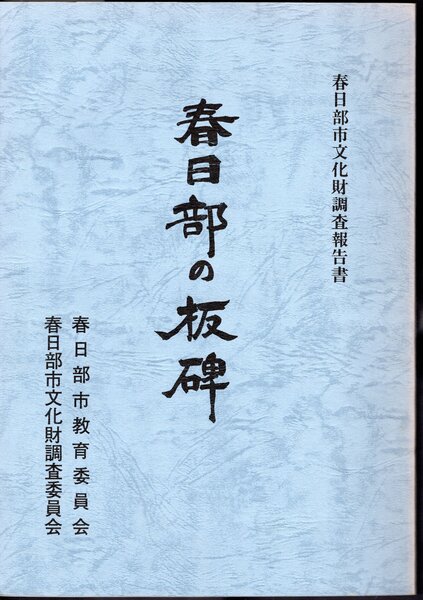 春日部市文化財調査報告書
春日部の板碑
春日部市教育委員会
春日部市文化財調査委員会